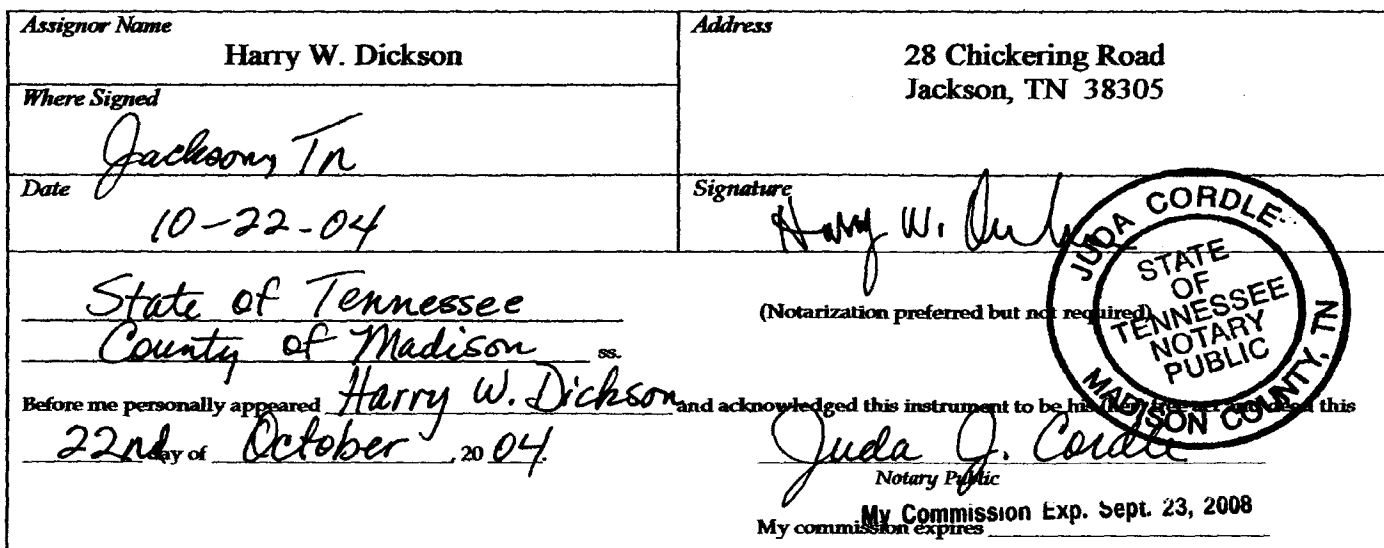 Assignor Name
Harry W. Dickson
Address
28 Chickering Road
Jackson, TN 38305
Where Signed
Jackson, Tn
Date
10-22-04
Signature
Harry W.
JUDA CORDLE
STATE
OF
TENNESSEE
NOTARY
PUBLIC
MADISON COUNTY, TN
State of Tennessee
(Notarization preferred but not required)
County of Madison ss.
Before me personally appeared Harry W. Dickson and acknowledged this instrument to be his this
22nd day of October, 2004.
Juda J. Cordle
Notary Public
My Commission Exp. Sept. 23, 2008
My commission expires